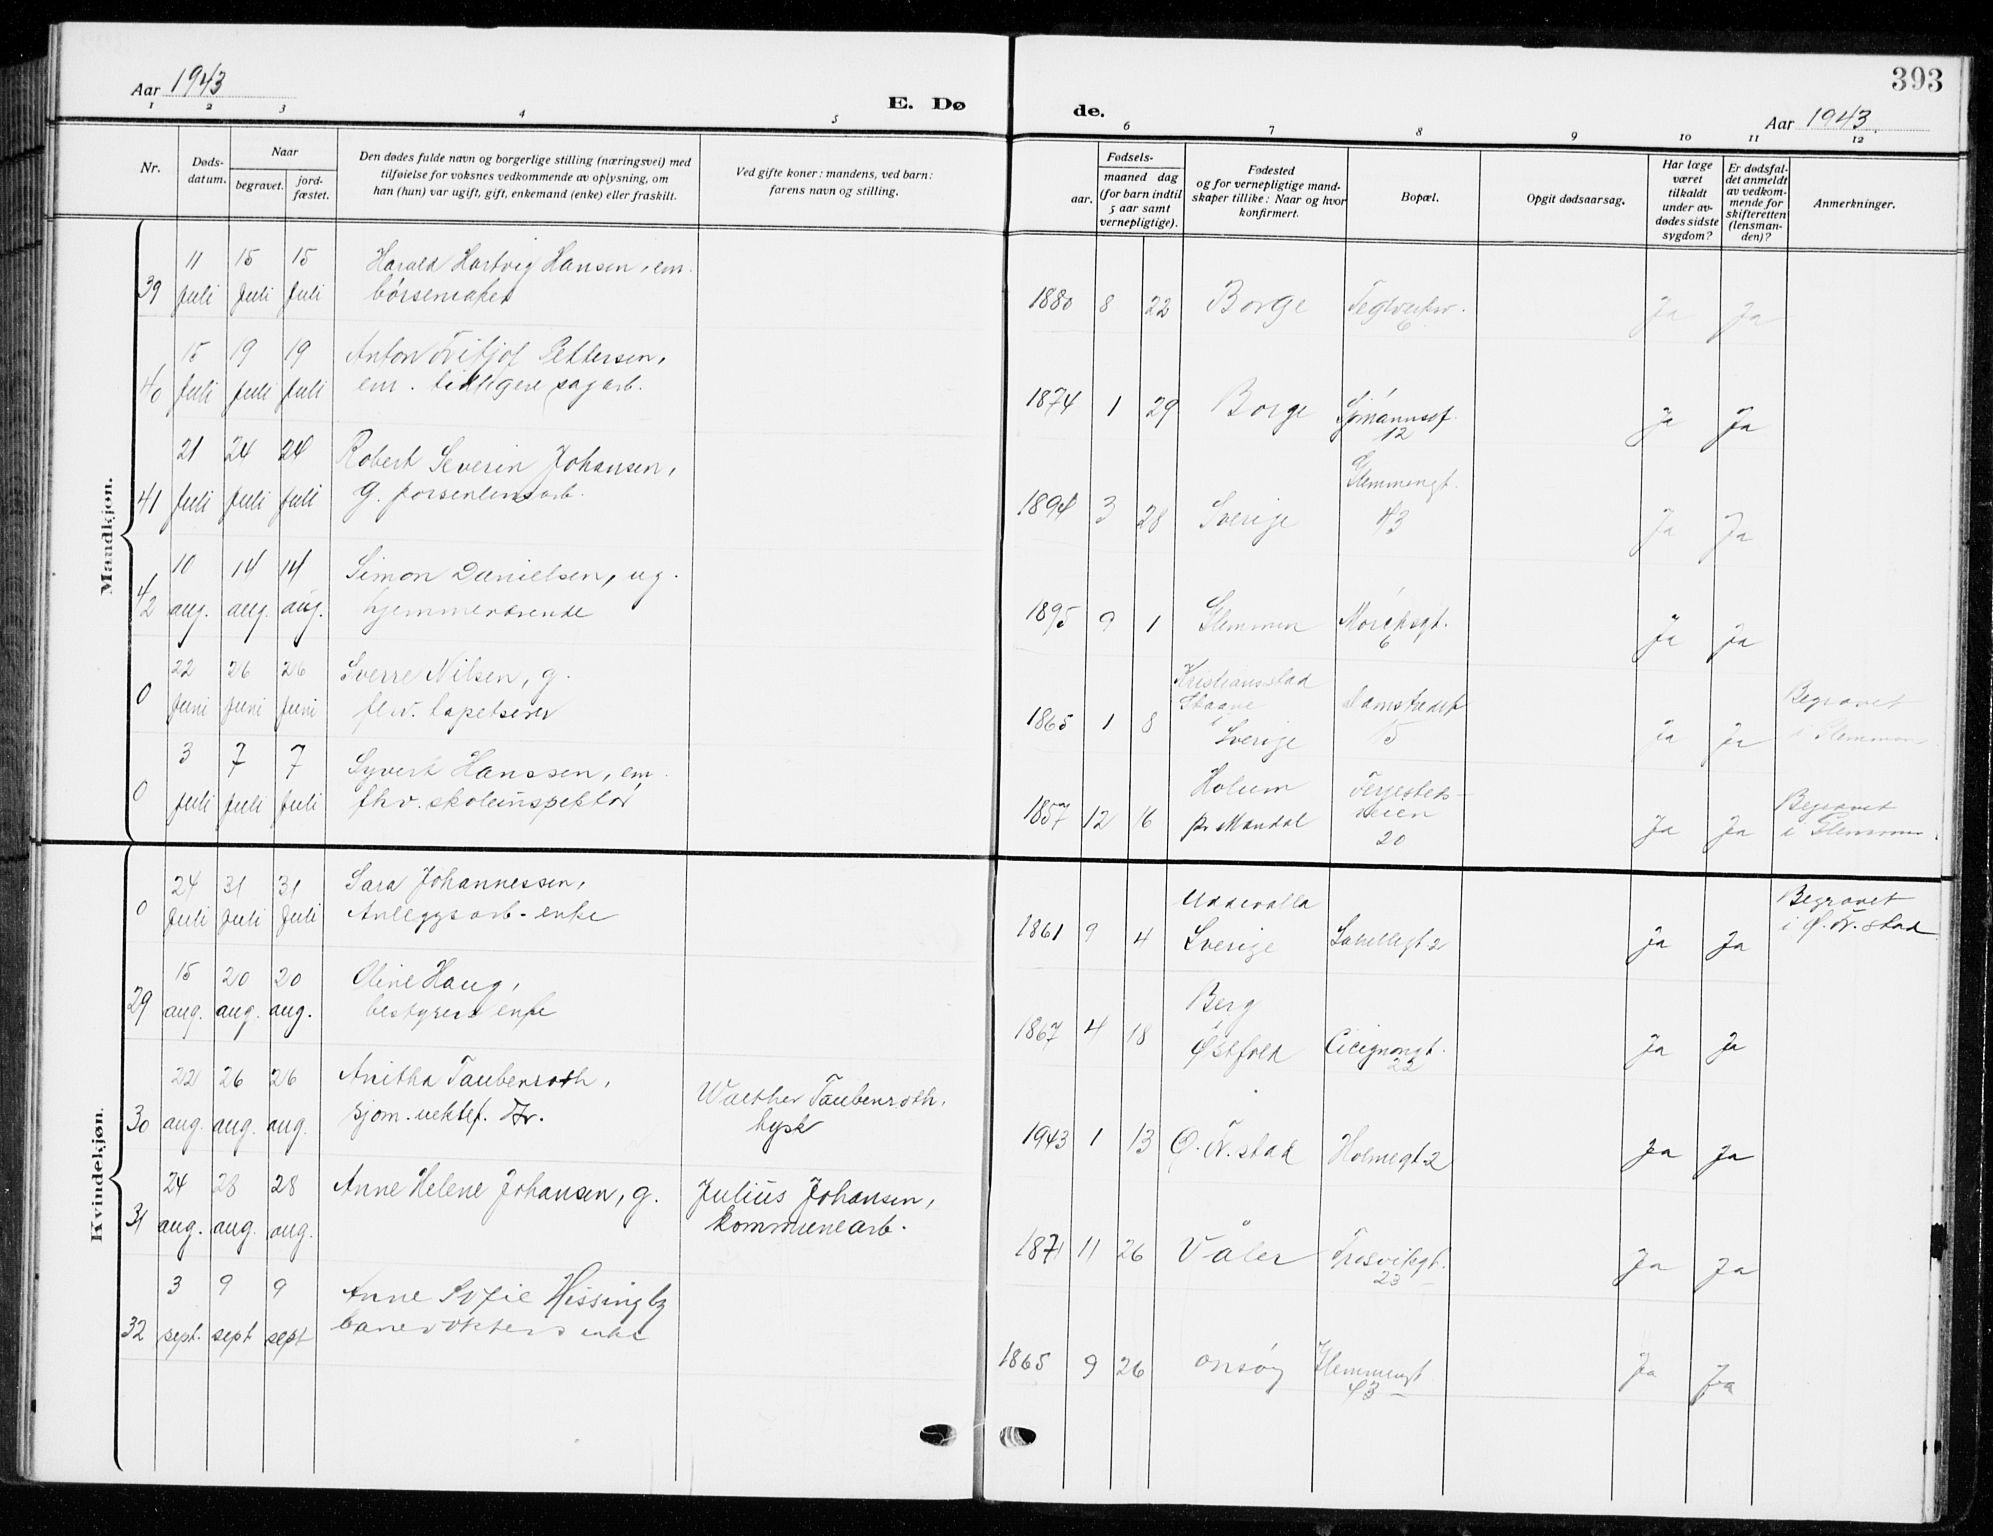 Aar 1943
E. Dø
de.
393
Aar 1943.
1 2 3 4 5 6 7 8 9 10 11 12
Nr.
Døds-
datum.
Naar
begravet.
jord-
fæstet.
Den dødes fulde navn og borgerlige stilling (næringsvei) med
tilføielse for voksnes vedkommende av oplysning, om
han (hun) var ugift, gift, enkemand (enke) eller fraskilt.
Ved gifte koner: mandens, ved barn:
farens navn og stilling.
Fødsels-
aar.
maaned dag
(for barn indtil
5 aar samt
vernepligtige).
Fødested
og for vernepligtige mand-
skaper tillike: Naar og hvor
konfirmert.
Bopæl.
Opgit dødsaarsag.
Har læge
været
tilkaldt
under av-
dødes sidste
sygdom?
Er dødsfal-
det anmeldt
av vedkom-
mende for
skifteretten
(lensman-
den)?
Anmerkninger.
Maandkjøn.
11 15 15 Harald Hartvig Hansen, em.
39 Juli Juli Juli børsemaker
1880 8 22 Borge Teglverksv. Ja Ja
6
15 19 19 Anton Fritjof Pettersen,
40 Juli Juli Juli em. tidligere sagarb.
1874 1 29 Borge Sjømannsg. Ja Ja
12
21 24 24 Robert Severin Johansen,
41 Juli Juli Juli g. porselensarb.
Glemmengt.
1894 3 28 Sverige 43 Ja Ja
10 14 14 Simon Danielsen, ug.
42 aug. aug. aug. hjemmeværende
1895 9 1 Glemmen Mørchsgt. Ja Ja
6
22 26 26 Sverre Nilsen, g.
0 Juni Juni Juni fhv. tapetserer
Kristiansstad
Skaane Damstredet Begravet
1865 1 8 Sverige 15 Ja Ja i Glemmen
3 7 7 Syvert Hanssen, em.
0 Juli Juli Juli fhv. skoleinspektør
Holum Ferjesteds- Begravet
1857 12 16 pr Mandal veien Ja Ja i Glemmen.
20
Kvindekjøn.
24 31 31 Sara Johannessen,
0 Juli Juli Juli Anleggsarb. enke
Uddevalla Begravet
1861 9 4 Sverige Labellegt 2 Ja Ja i Ø. Fr.stad
15 20 20 Oline Haug,
29 aug. aug. aug. bestyrers enke
Berg
1867 4 18 Østfold Cicignongt. Ja Ja
22
22 26 26 Anitha Taubenroth,
30 aug. aug. aug. sjøm. uektef.
Walther Taubenroth,
tysk
1943 1 13 Ø. Fr.stad Holmegt 2 Ja Ja
24 28 28 Anne Helene Johansen, g. Julius Johansen,
31 aug. aug. aug. kommunearb.
1871 11 26 Våler Trosvikgt. Ja Ja
23
3 9 9 Anne Sofie Hissingby
32 sept. sept sept banevokters enke
1865 9 26 onsøy Glemmengt Ja Ja
43